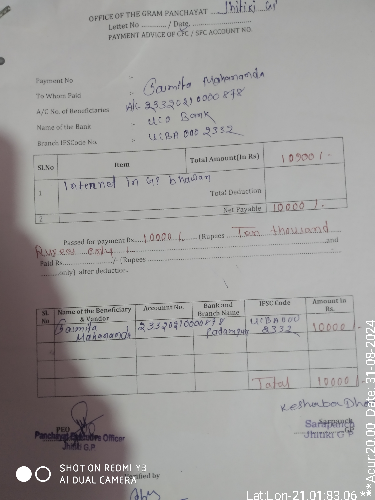 OFFICE OF THE GRAM PANCHAYAT Jhinki GP
Letter No ............/ Date..............
PAYMENT ADVICE OF CFC / SFC ACCOUNT NO.
Payment No :
To Whom Paid : Basmita Mahananda
A/C No. of Beneficiaries A/c 23320210000878
Name of the Bank : UCO Bank
Branch IFSCode No. : UCBA 000 2332
Sl.No Item Total Amount(In Rs) 10000/-
1 Internet In GP Bhawan
Total Deduction
2 Net Payable 10000/-
Passed for payment Rs. 10000/- (Rupees Ten thousand
Rupees only) and
Paid Rs............/ (Rupees
only) after deduction.
Sl. No Name of the Beneficiary & Vendor Accounts No. Bank and Branch Name IFSC Code Amount in Rs.
Basmita Mahananda 23320210000878 UCBA000 2332 10000/-
Total 10000/-
PEO
Panchayat Executive Officer
Jhinki G.P
Sarapanch
Jhinki G.P
SHOT ON REDMI Y3
AI DUAL CAMERA
Lat:Lon-21.01:83.06 ***Acur:20.00, Date: 31-08-2024